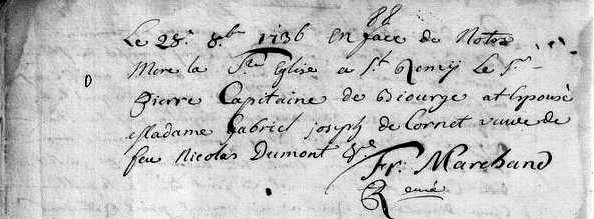 88
Le 28e 8b 1736 En face de Notre
Mere la Ste Eglise a St Remij Le Sr
Pierre Capitaine de Biourge at Epousé
Madame Gabriel joseph de Cornet vuve de
feu Nicolas Dumont
Fr. Marchand